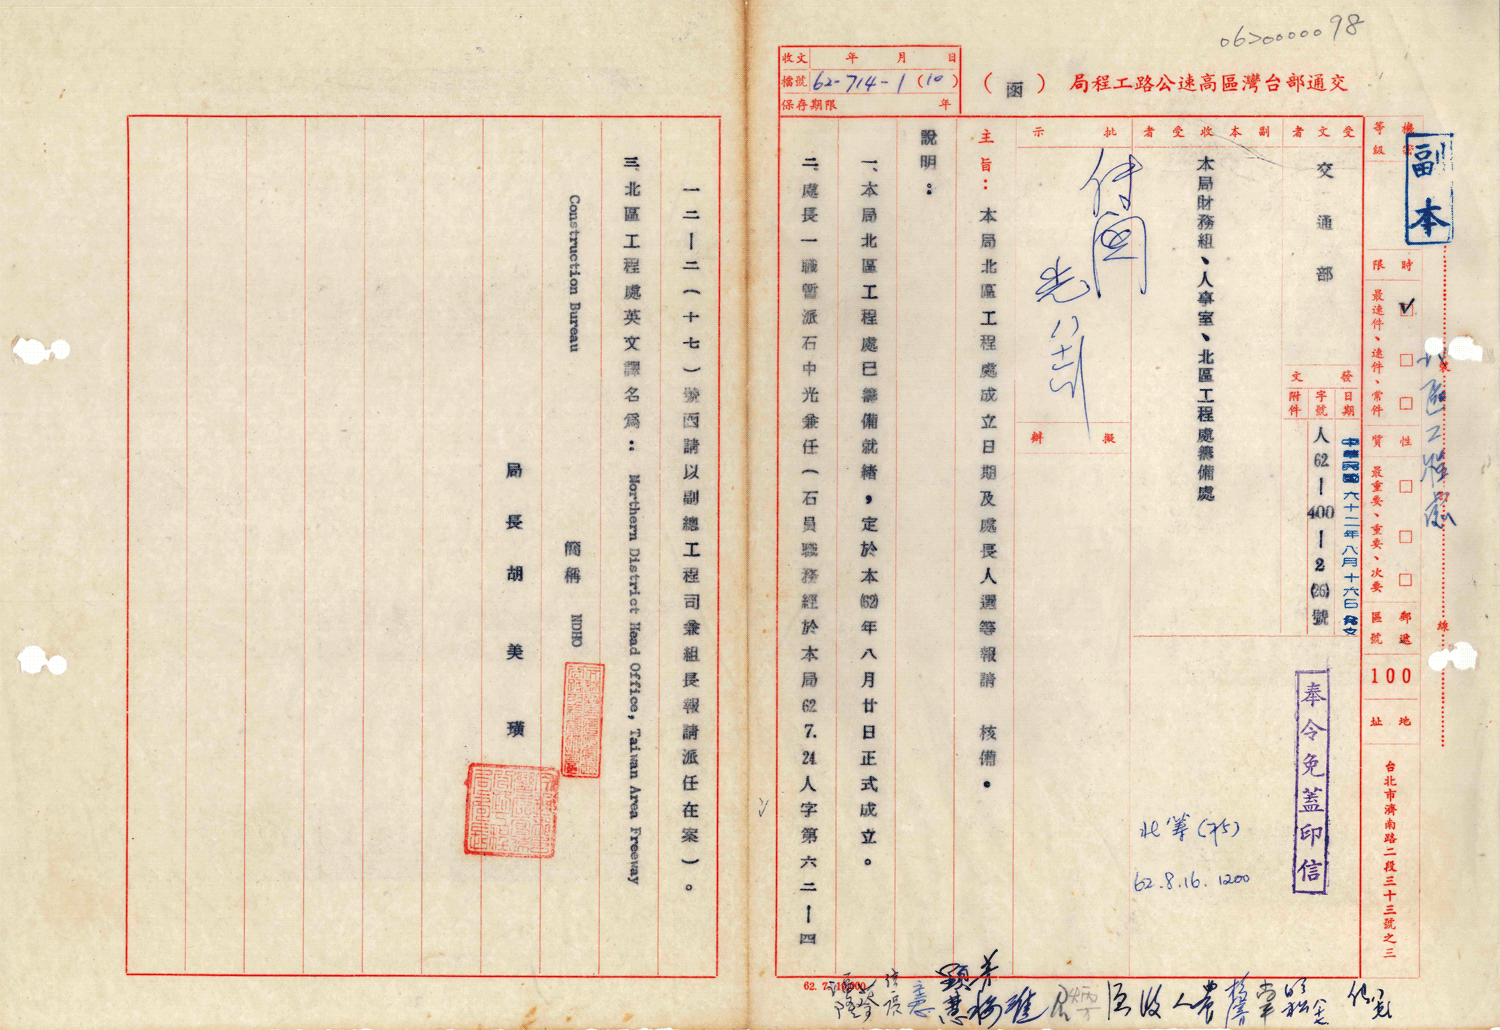 0620000098
收文 年 月 日
檔號 62-714-1(10)
保存期限 年
交通部台灣區高速公路工程局(函)
機密等級
副本
時限
最速件、速件、常件
性質
最重要、重要、次要
郵遞區號
100
地址
台北市濟南路二段三十三號之三
裝
線
北區工程處
受文者
交通部
發文
日期
中華民國六十二年八月十六日發文
字號
人62—400—2(26)號
附件
副本收受者
本局財務組、人事室、北區工程處籌備處
奉令免蓋印信
北籌(水)
62.8.16.1200
批示
擬辦
主旨:本局北區工程處成立日期及處長人選等報請 核備。
說明:
一、本局北區工程處已籌備就緒,定於本(62)年八月廿日正式成立。
二、處長一職暫派石中光兼任(石員職務經於本局62.7.24人字第六二—四
一二—二(十七)號函請以副總工程司兼組長報請派任在案)。
三、北區工程處英文譯名為: Northern District Head Office, Taiwan Area Freeway
Construction Bureau
簡稱 NDHO
局長胡美璜
62. 7. 10,000